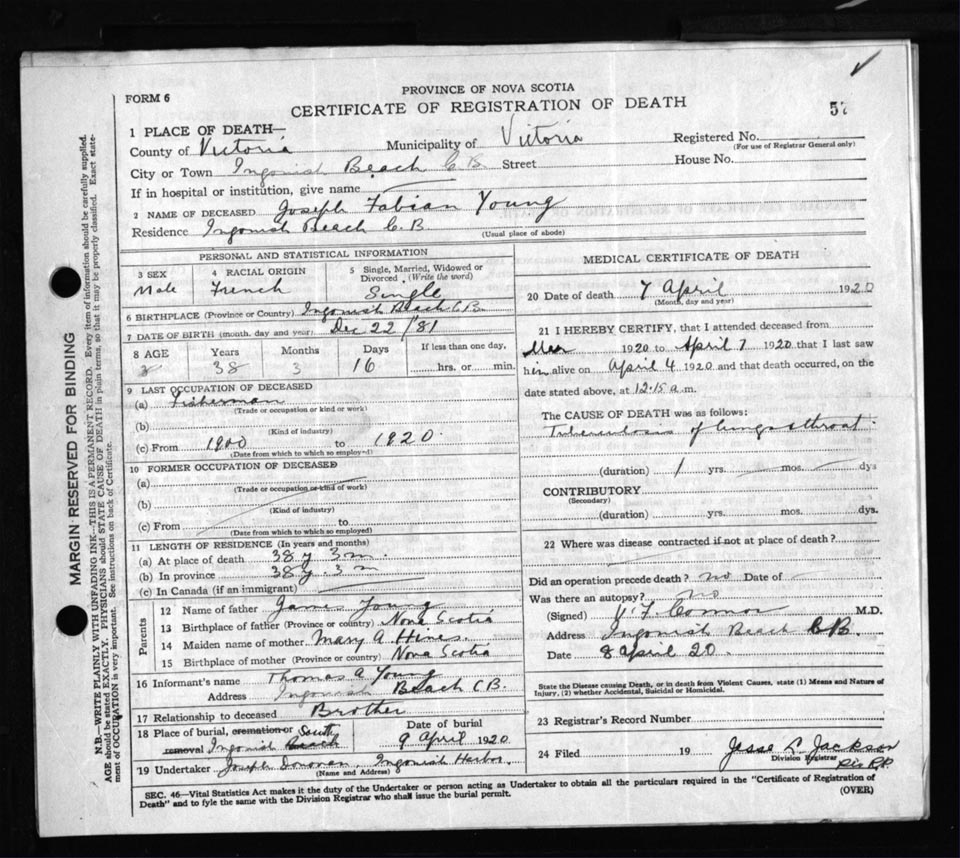 FORM 6
PROVINCE OF NOVA SCOTIA
CERTIFICATE OF REGISTRATION OF DEATH
57
1 PLACE OF DEATH—
County of Victoria Municipality of Victoria Registered No.
(For use of Registrar General only)
City or Town Ingonish Beach C.B. Street House No.
If in hospital or institution, give name
2 NAME OF DECEASED Joseph Fabian Young
Residence Ingonish Beach C.B.
(Usual place of abode)
PERSONAL AND STATISTICAL INFORMATION
3 SEX Male
4 RACIAL ORIGIN French
5 Single, Married, Widowed or Divorced (Write the word) Single
6 BIRTHPLACE (Province or Country) Ingonish Beach C.B.
7 DATE OF BIRTH (month, day and year) Dec 22/'81
8 AGE Years 38 Months 3 Days 16 If less than one day, hrs. or min.
9 LAST OCCUPATION OF DECEASED
(a) Fisherman
(Trade or occupation or kind of work)
(b)
(Kind of industry)
(c) From 1900 to 1920.
(Date from which to which so employed)
10 FORMER OCCUPATION OF DECEASED
(a)
(Trade or occupation or kind of work)
(b)
(Kind of industry)
(c) From to
(Date from which to which so employed)
11 LENGTH OF RESIDENCE (In years and months)
(a) At place of death 38 y 3 m.
(b) In province 38 y. 3 m
(c) In Canada (if an immigrant)
Parents
12 Name of father James Young
13 Birthplace of father (Province or country) Nova Scotia
14 Maiden name of mother Mary A Hines.
15 Birthplace of mother (Province or country) Nova Scotia
16 Informant's name Thomas A. Young
Address Ingonish Beach C.B.
17 Relationship to deceased Brother
18 Place of burial, cremation or removal South Ingonish Beach Date of burial 9 April 1920
19 Undertaker Joseph Donovan, Ingonish Harbor.
(Name and Address)
MEDICAL CERTIFICATE OF DEATH
20 Date of death 7 April 1920
(Month, day and year)
21 I HEREBY CERTIFY, that I attended deceased from
Mar 1920 to April 7 1920 that I last saw
him alive on April 4 1920 and that death occurred, on the
date stated above, at 12.15 a.m.
The CAUSE OF DEATH was as follows:
Tuberculosis of lungs & throat.
(duration) 1 yrs. mos. dys
CONTRIBUTORY
(Secondary)
(duration) yrs. mos. dys.
22 Where was disease contracted if not at place of death?
Did an operation precede death? no Date of
Was there an autopsy? no
(Signed) Connor M.D.
Address Ingonish Beach CB.
Date 8 April 20.
State the Disease causing Death, or in death from Violent Causes, state (1) Means and Nature of
Injury, (2) whether Accidental, Suicidal or Homicidal.
23 Registrar's Record Number
24 Filed 19 Jesse L. Jackson
Division Registrar
SEC. 46—Vital Statistics Act makes it the duty of the Undertaker or person acting as Undertaker to obtain all the particulars required in the "Certificate of Registration of
Death" and to fyle the same with the Division Registrar who shall issue the burial permit.
(OVER)
MARGIN RESERVED FOR BINDING
N.B.—WRITE PLAINLY WITH UNFADING INK—THIS IS A PERMANENT RECORD. Every item of information should be carefully supplied.
AGE should be stated EXACTLY. PHYSICIANS should STATE CAUSE OF DEATH in plain terms, so that it may be properly classified. Exact state-
ment of OCCUPATION is very important. See instructions on back of Certificate.